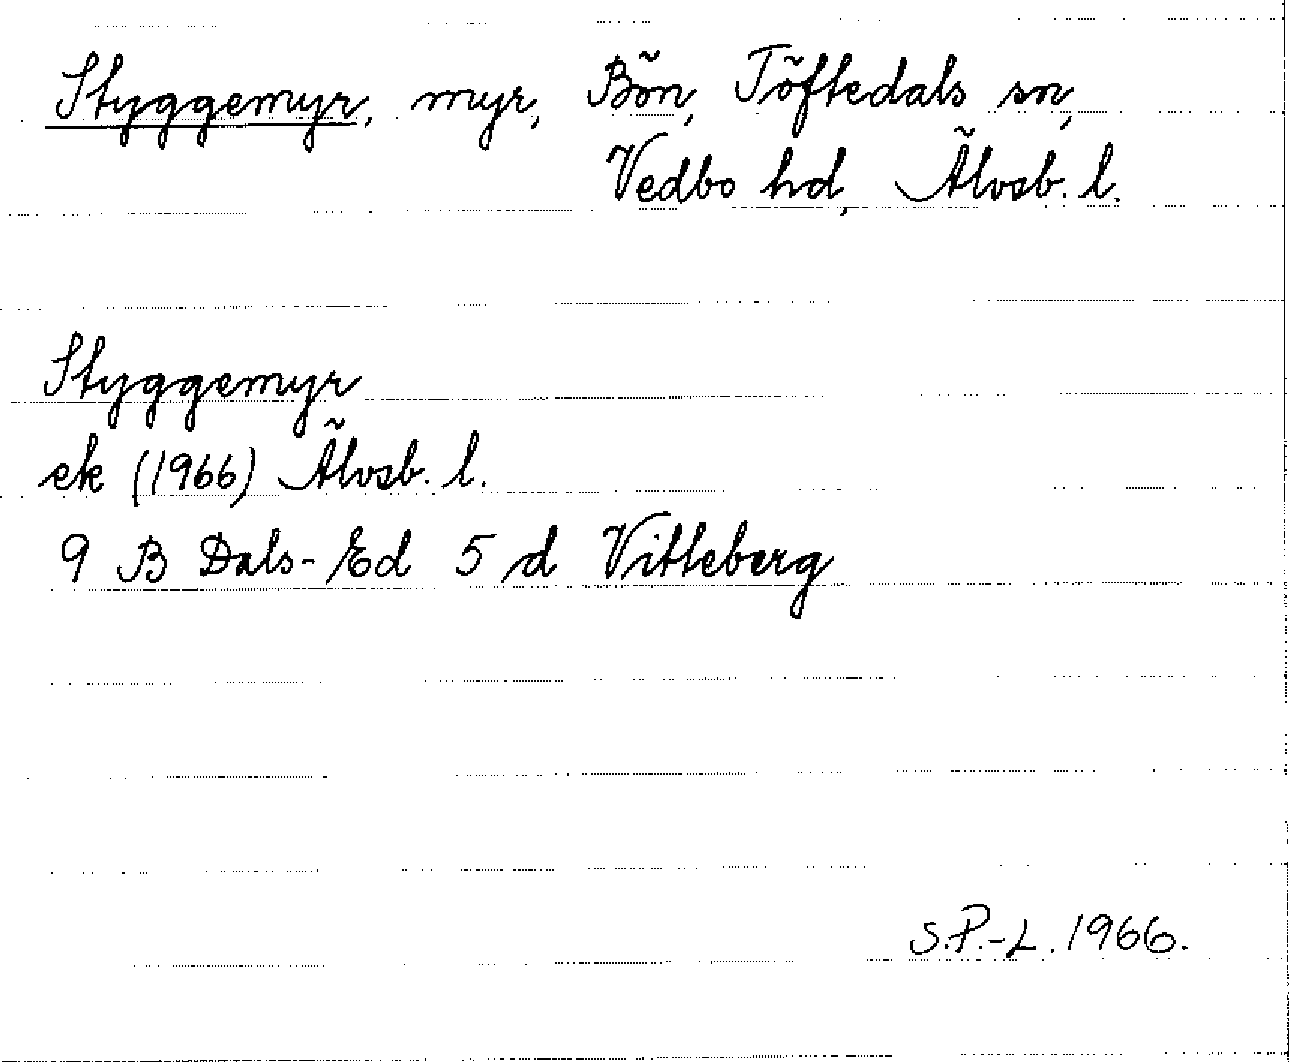 Styggemyr, myr, Bön, Töftedals sn,
Vedbo hd, Älvsb. l.
Styggemyr
ek (1966) Älvsb. l.
9 B Dals-Ed 5 d Vitteberg
S.P.-L. 1966.